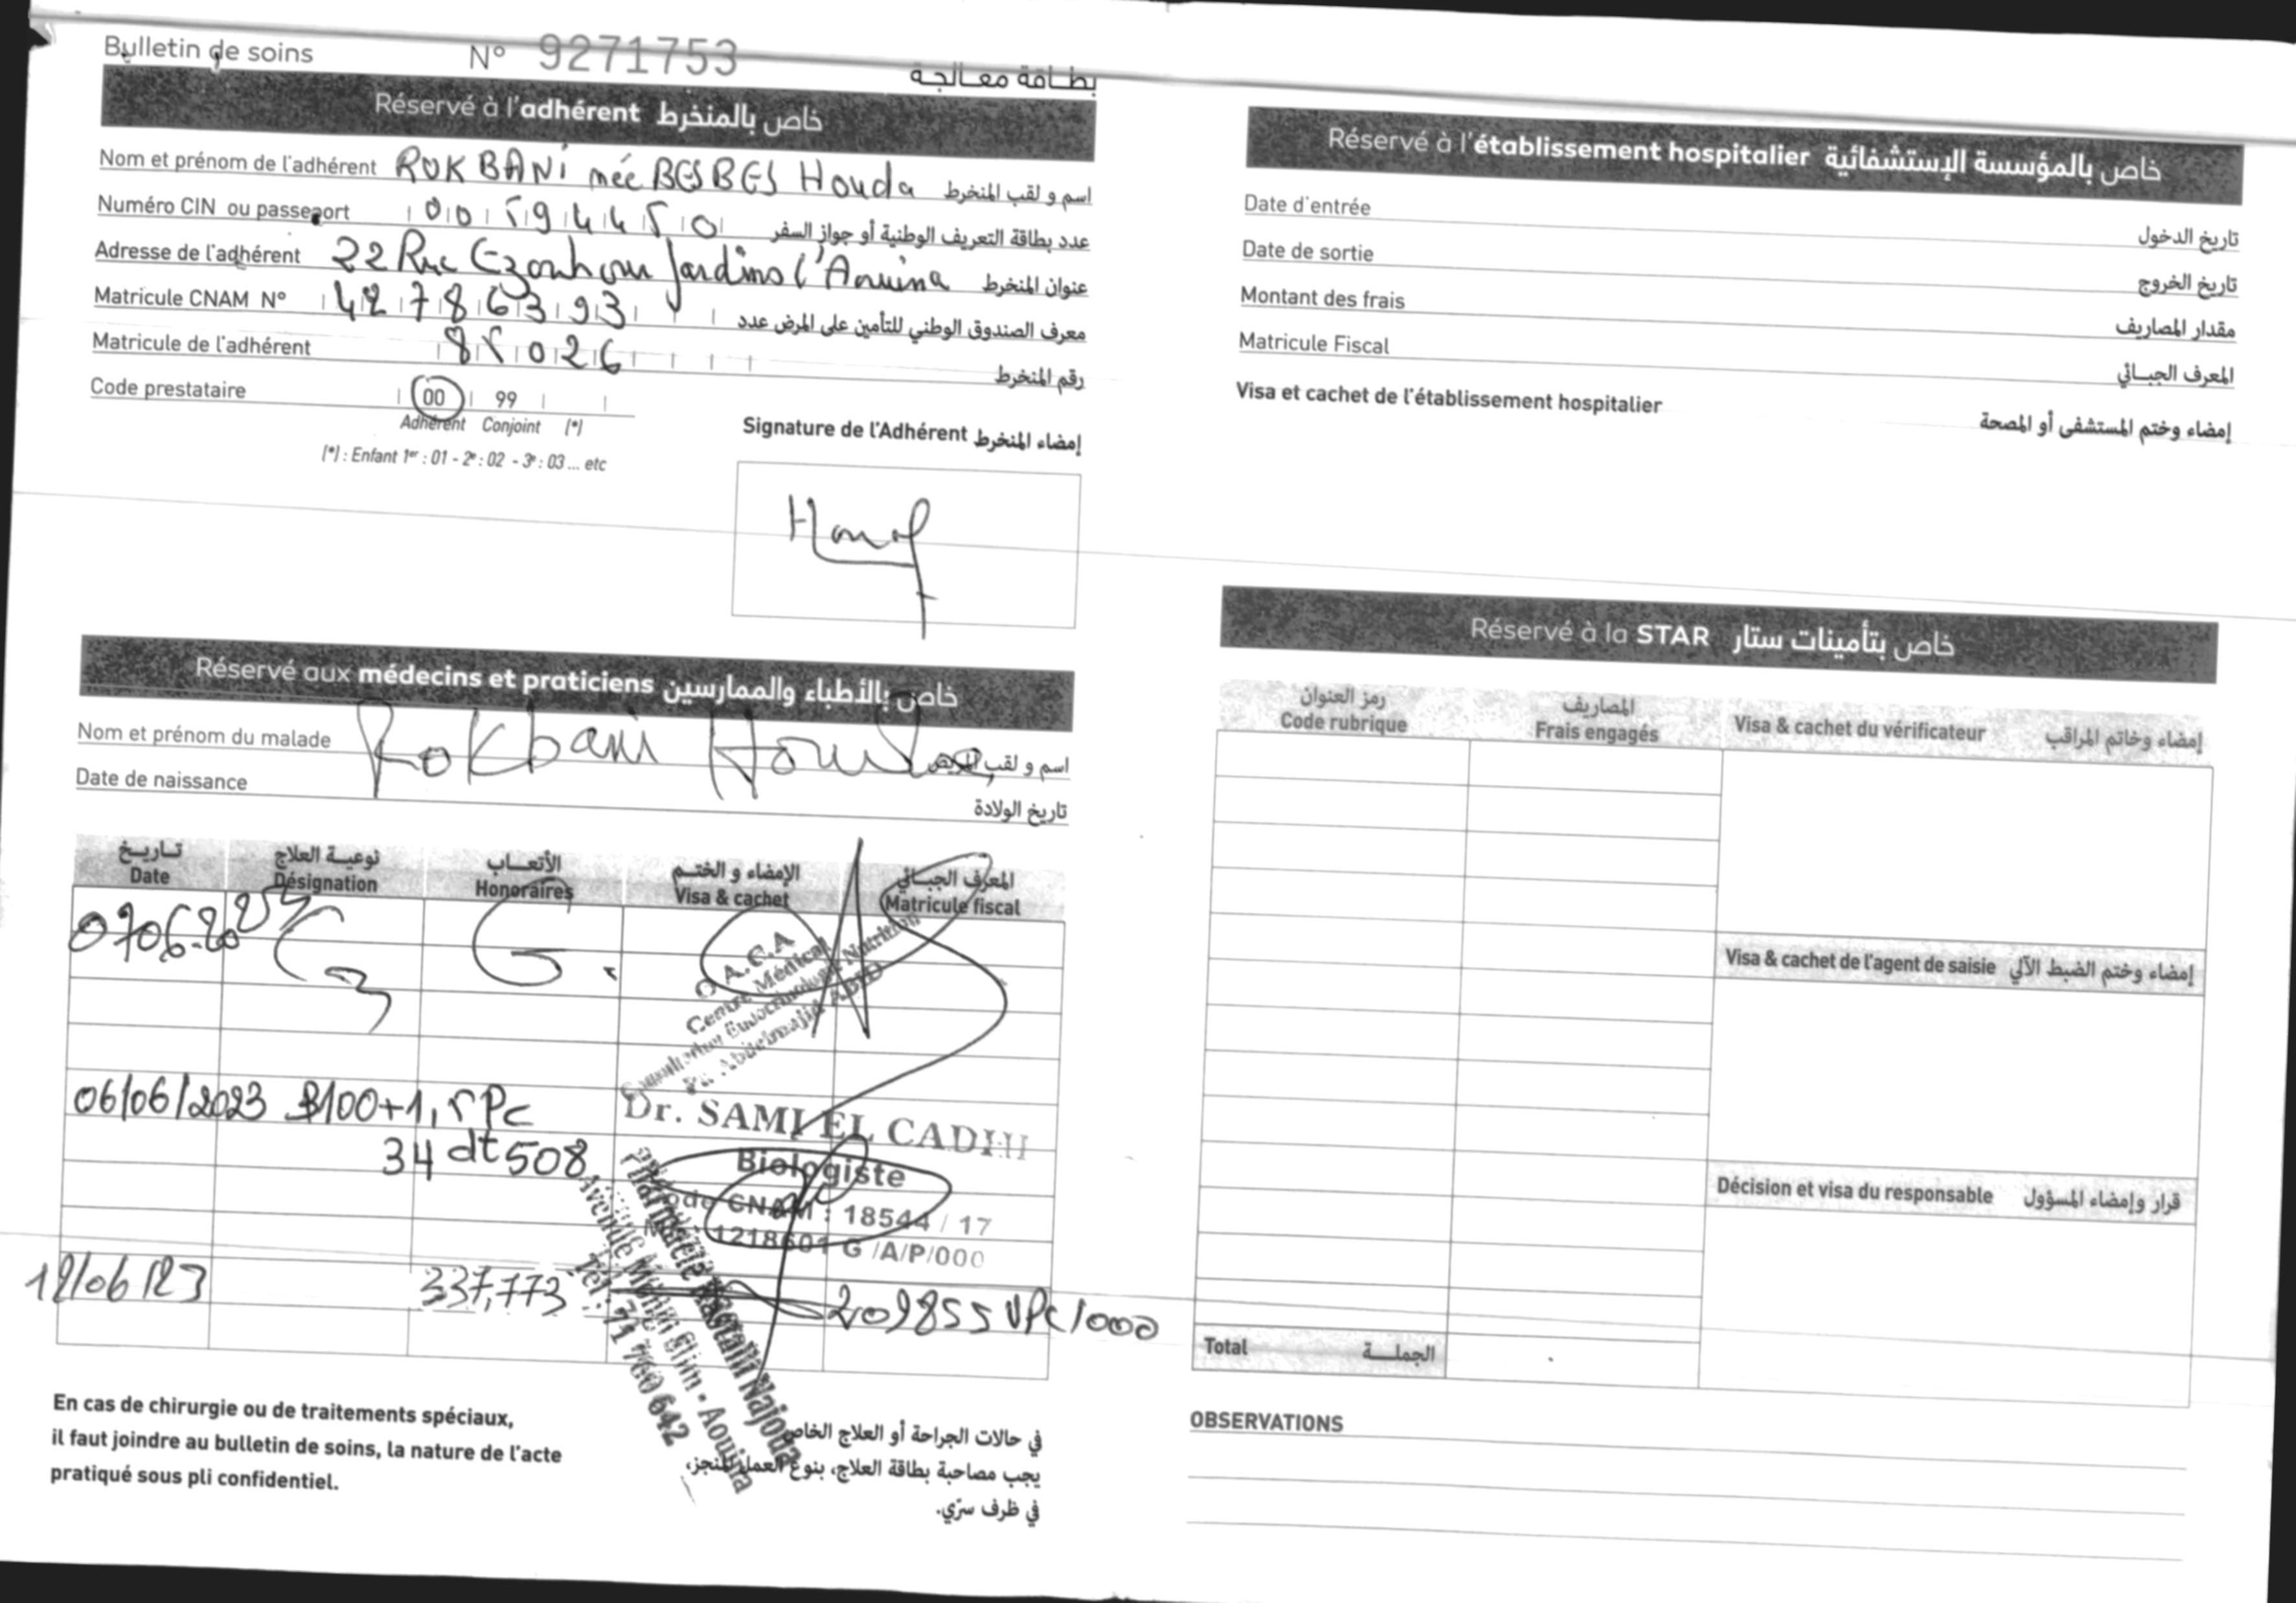 Bulletin de soins N° 9271753 بطاقة معالجة
Réservé à l'adhérent خاص بالمنخرط
Nom et prénom de l'adhérent ROKBANI née BESBES Houda اسم و لقب المنخرط
Numéro CIN ou passeport 00594450 عدد بطاقة التعريف الوطنية أو جواز السفر
Adresse de l'adhérent 22 Rue Ezouhour Jardins l'Aouina عنوان المنخرط
Matricule CNAM N° 42786393 معرف الصندوق الوطني للتأمين على المرض عدد
Matricule de l'adhérent 85026 رقم المنخرط
Code prestataire 00 99
Adhérent Conjoint (*)
(*) : Enfant 1er : 01 - 2e : 02 - 3e : 03 ... etc
Signature de l'Adhérent إمضاء المنخرط
Réservé aux médecins et praticiens خاص بالأطباء والممارسين
Nom et prénom du malade Rokbani Houda اسم و لقب المريض
Date de naissance تاريخ الولادة
تاريخ نوعية العلاج الأتعاب الإمضاء و الختم المعرف الجبائي
Date Désignation Honoraires Visa & cachet Matricule fiscal
O.A.C.A
Centre Médical
06/06/2023 B100+1,5 PC
34 dt 508
Dr. SAMI EL CADHI
Biologiste
Code CNAM : 18544 / 17
1218601 G /A/P/000
12/06/23 337,773 209855 VPC/000
Pharmacie Rastalli Najoua
Avenue Mongi Slim - Aouina
Tél : 71 760 642
En cas de chirurgie ou de traitements spéciaux,
il faut joindre au bulletin de soins, la nature de l'acte
pratiqué sous pli confidentiel.
في حالات الجراحة أو العلاج الخاص
يجب مصاحبة بطاقة العلاج، بنوع العمل المنجز،
في ظرف سرّي.
Réservé à l'établissement hospitalier خاص بالمؤسسة الإستشفائية
Date d'entrée تاريخ الدخول
Date de sortie تاريخ الخروج
Montant des frais مقدار المصاريف
Matricule Fiscal المعرف الجبائي
Visa et cachet de l'établissement hospitalier إمضاء وختم المستشفى أو المصحة
Réservé à la STAR خاص بتأمينات ستار
رمز العنوان المصاريف
Code rubrique Frais engagés Visa & cachet du vérificateur إمضاء وخاتم المراقب
Visa & cachet de l'agent de saisie إمضاء وختم الضبط الآلي
Décision et visa du responsable قرار وإمضاء المسؤول
Total الجملة
OBSERVATIONS